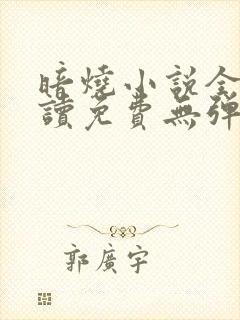 暗燒小說全
讀免費無彈
郭廣宇